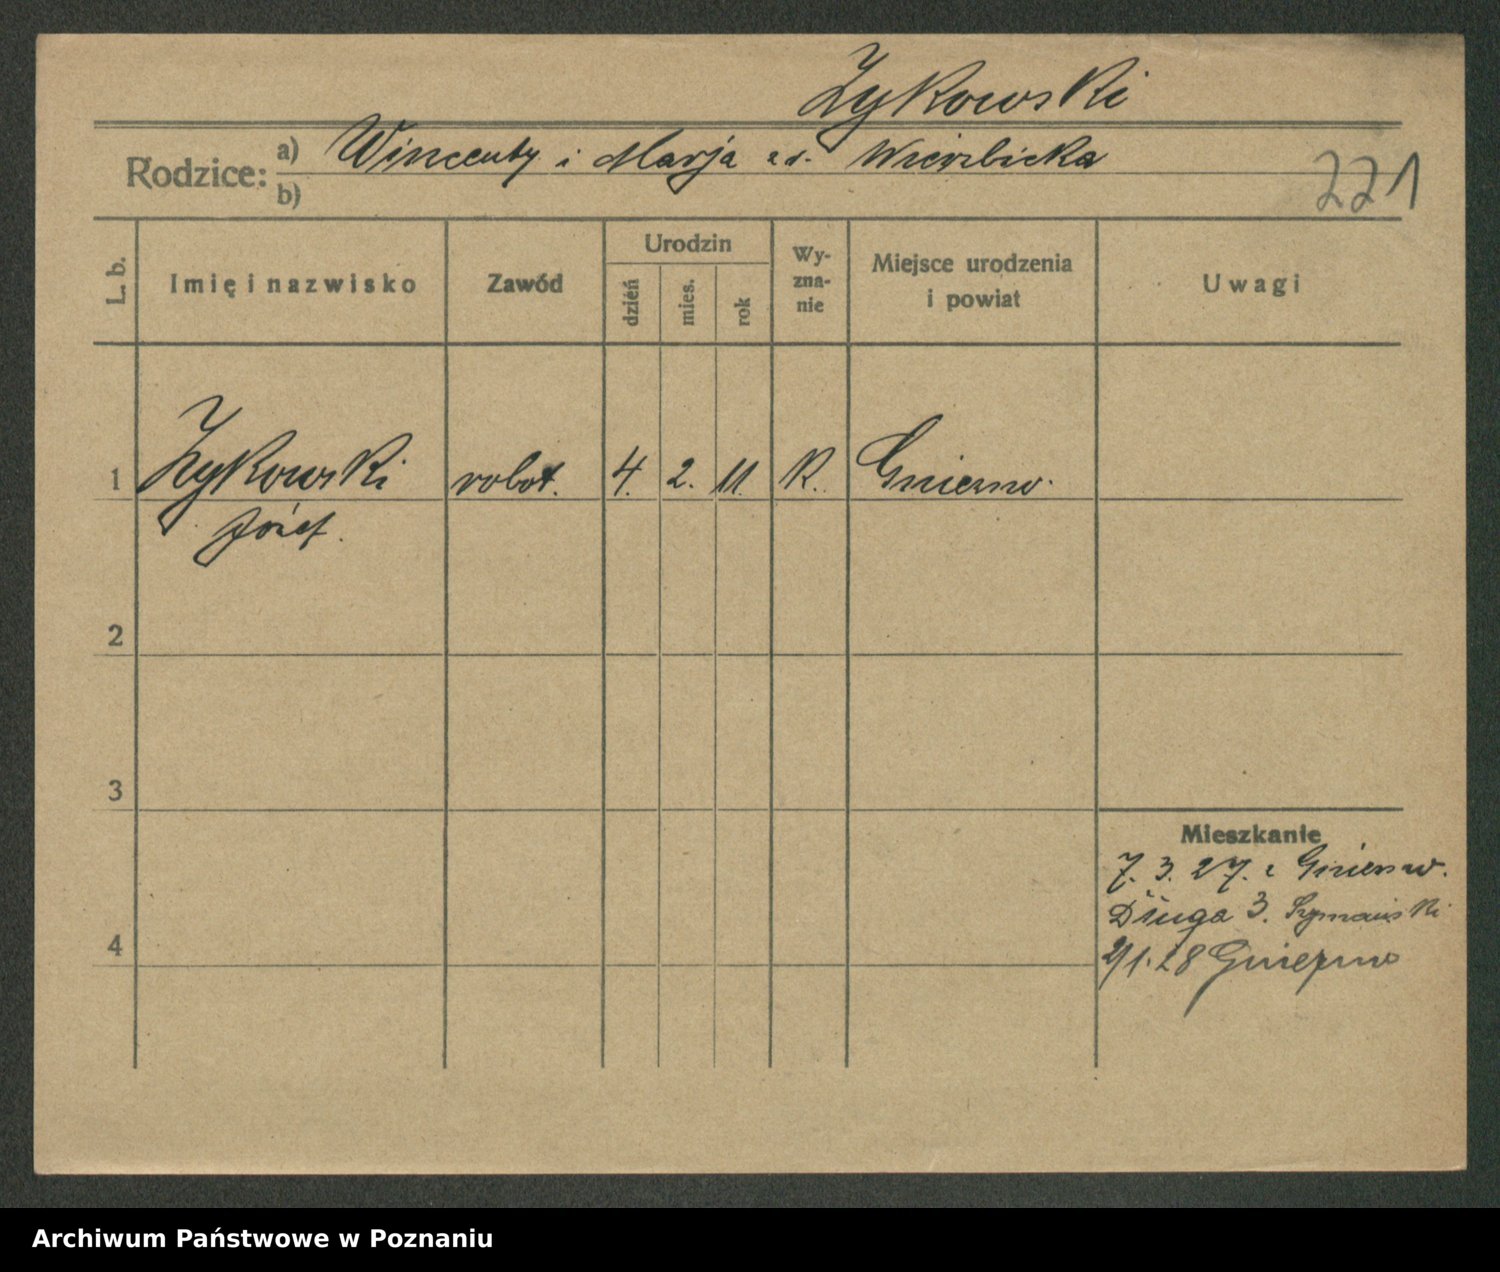 Zykowski
Rodzice: a) Wincenty i Marja z d. Wierzbicka
b)
221
L. b.
Imię i nazwisko
Zawód
Urodzin
dzień
mies.
rok
Wy-
zna-
nie
Miejsce urodzenia
i powiat
Uwagi
1 Zykowski robot. 4. 2. 11. R. Gniezno.
Józef.
2
3
Mieszkanie
7. 3. 27. z Gniezno.
Długa 3. Szymański
4
2/1. 28 Gniezno
Archiwum Państwowe w Poznaniu